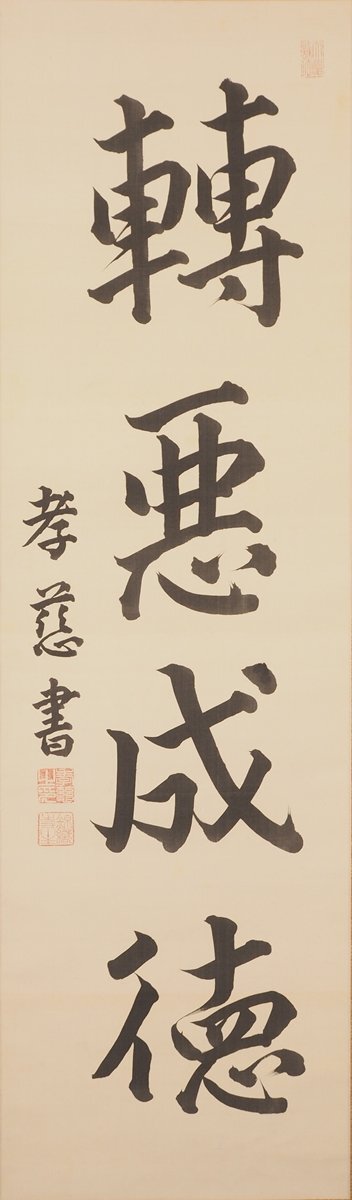 轉悪成徳
孝慈書